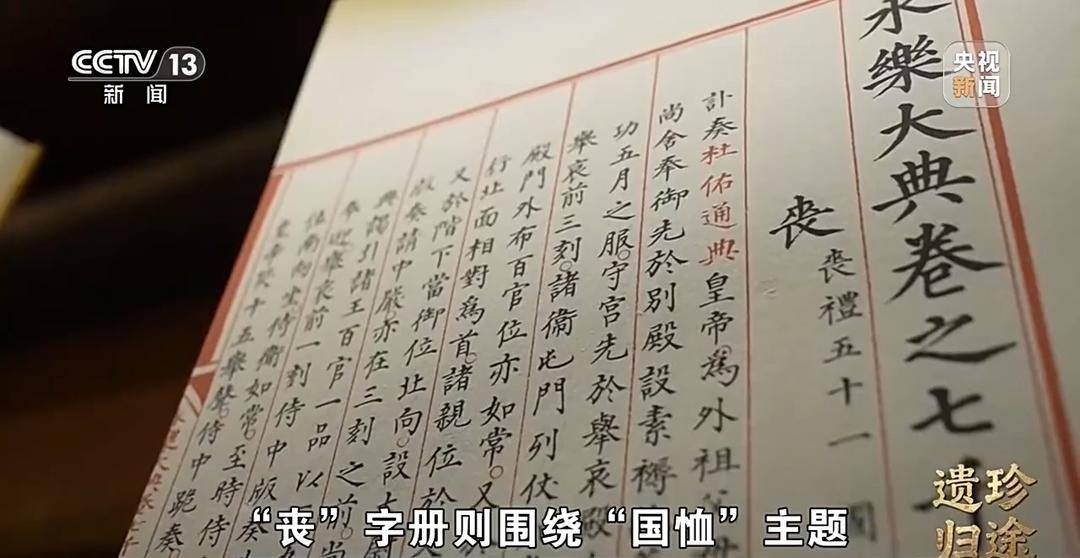 CCTV 13
新闻
央视
新闻
永樂大典卷之七
喪 喪禮五十一
訃奏杜佑通典皇帝為外祖父母
尚舍奉御先於別殿設素褥
功五月之服守宮先於舉哀殿
舉哀前三刻諸衞屯門列仗
殿門外布百官位亦如常又
行北面相對為首諸親位於
又於階下當御位北向設
版奏請中嚴亦在三刻之前
典謁引諸王百官一品以
奉迎舉哀前一刻侍中版奏
位南向坐侍衞如常至時侍
十五舉聲侍中跪奏
“丧”字册则围绕“国恤”主题
遗珍
归途